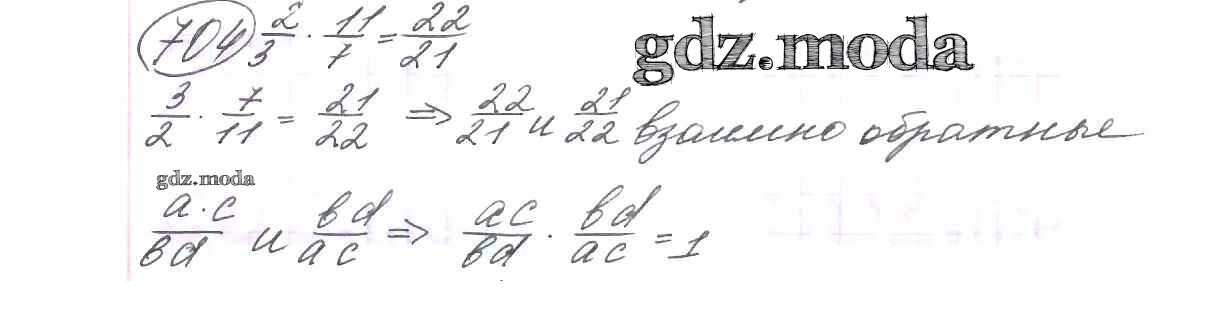 704 2/3 · 11/7 = 22/21
gdz.moda
3/2 · 7/11 = 21/22 ⇒ 22/21 и 21/22 взаимно обратные
gdz.moda
a·c/bd и bd/ac ⇒ ac/bd · bd/ac = 1